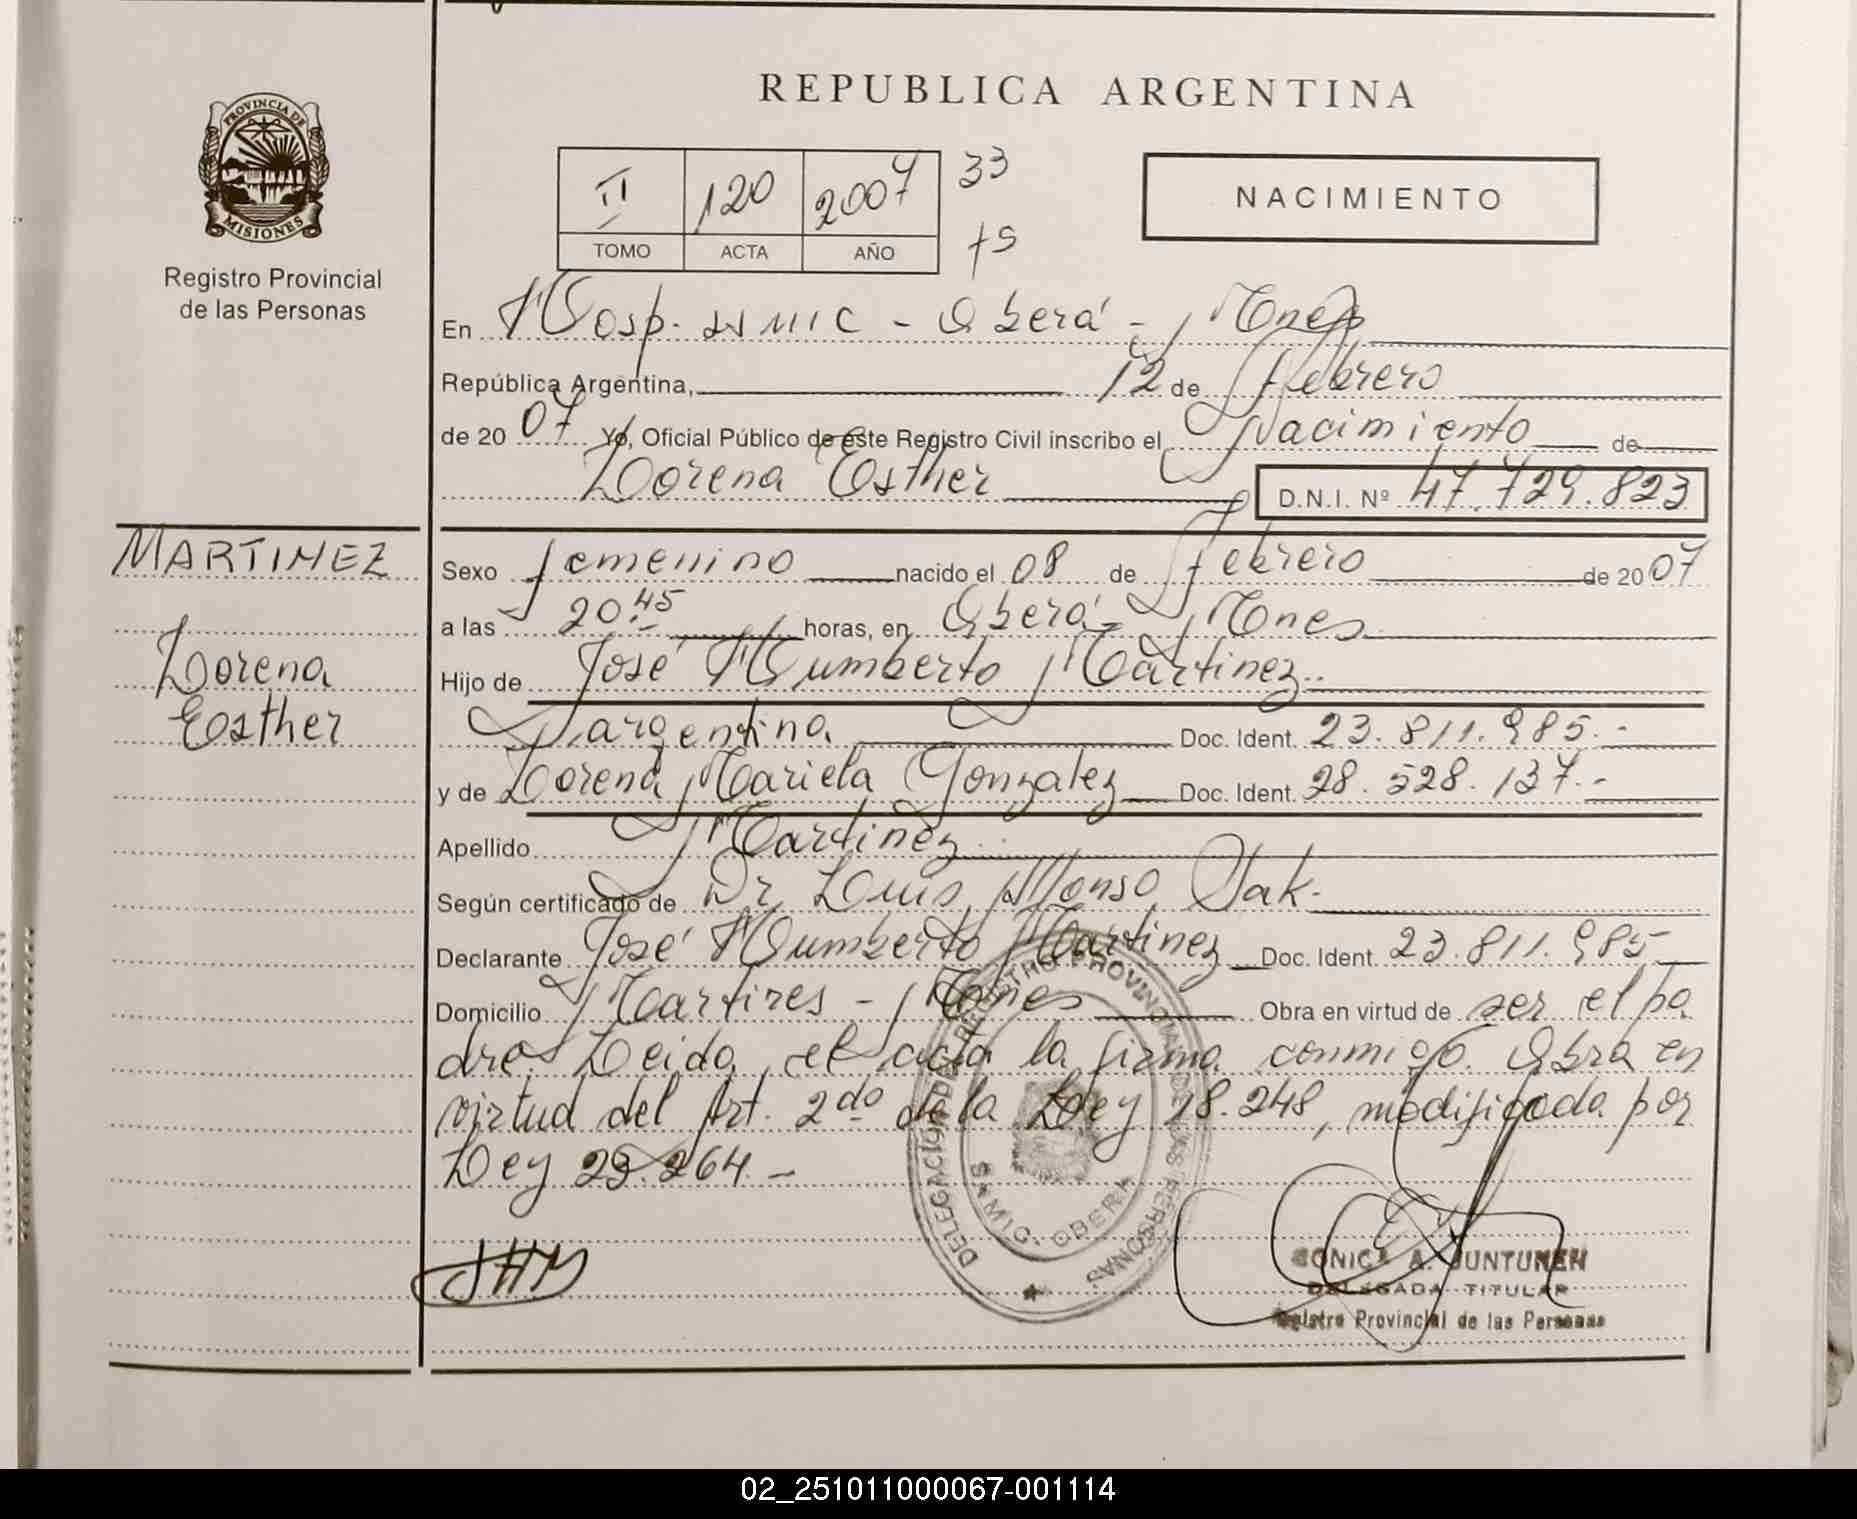 REPUBLICA ARGENTINA
PROVINCIA DE
MISIONES
Registro Provincial
de las Personas
II 120 2007 33
TOMO ACTA AÑO 75
NACIMIENTO
En Hosp. SAMIC - Oberá - Mnes
República Argentina, 12 de Febrero
de 20 07 Yo, Oficial Público de este Registro Civil inscribo el Nacimiento de
Lorena Esther D.N.I. Nº 47.729.823
MARTINEZ
Lorena
Esther
Sexo femenino nacido el 08 de Febrero de 20 07
a las 20:45 horas, en Oberá - Mnes
Hijo de José Humberto Martinez.
argentina Doc. Ident. 23.811.985.-
y de Lorena Mariela Gonzalez Doc. Ident. 28.528.137.-
Apellido Martinez
Según certificado de Dr Luis Alfonso Sak.
Declarante José Humberto Martinez Doc. Ident. 23.811.985
Domicilio Martires - Mnes Obra en virtud de ser el pa
dre. Leida el acta la firma conmigo. Obra en
virtud del Art. 2do de la Ley 18.248, modificada por
Ley 23.264.-
JHM
DELEGACION DEL REGISTRO PROVINCIAL DE LAS PERSONAS
SAMIC. OBERA
A. JUNTUNEN
DELEGADA TITULAR
Registro Provincial de las Personas
02_251011000067-001114